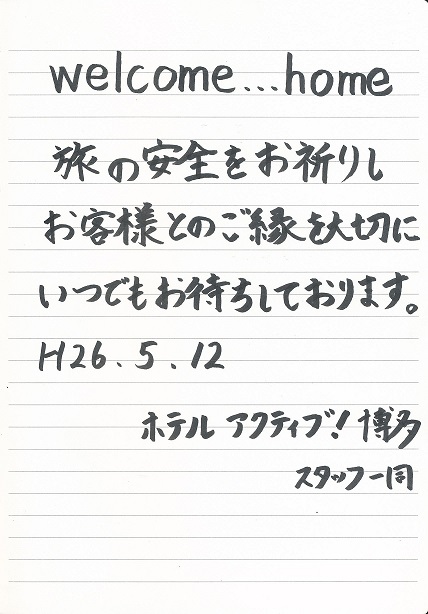 welcome...home
旅の安全をお祈りし
お客様とのご縁を大切に
いつでもお待ちしております。
H26.5.12
ホテル アクティブ!博多
スタッフ一同